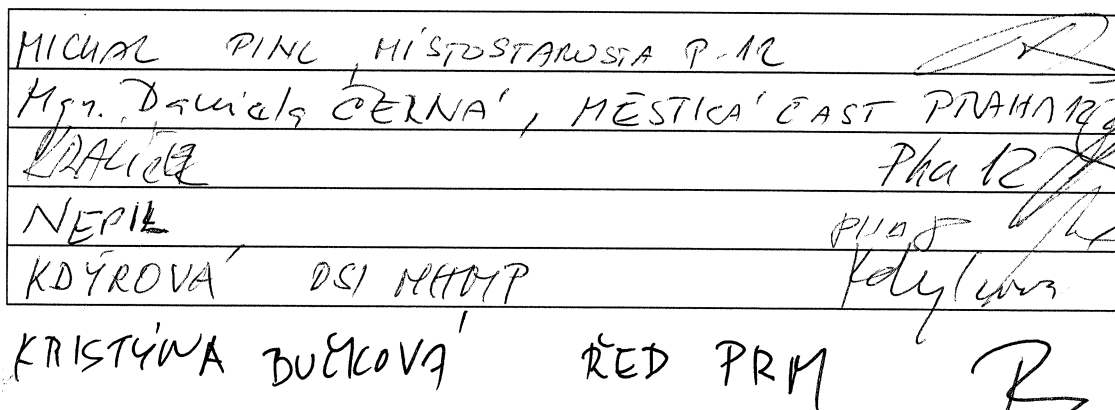 MICHAL PINC, MÍSTOSTAROSTA P-12
Mgr. Daniela ČERNÁ, MĚSTSKÁ ČÁST PRAHA 12
KRALÍČEK Pha 12
NEPIL PHA 8
KDÝROVÁ OSI MHMP
KRISTÝNA BUČKOVÁ ŘED PRM